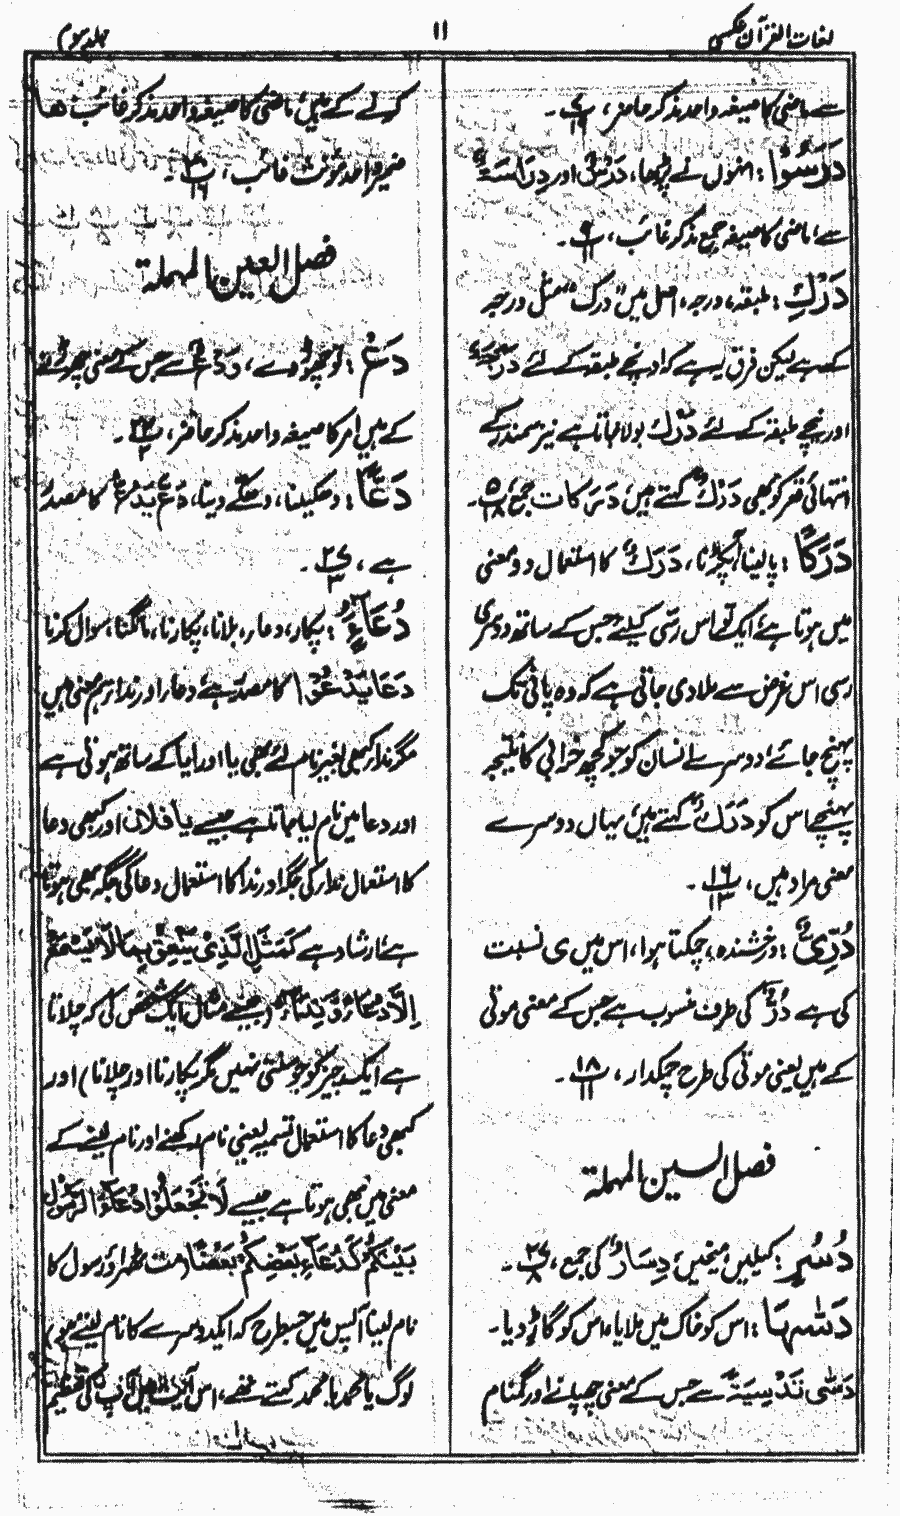 لغات القرآن عکسی
۱۱
جلد سوم
سے ماضی کا صیغہ واحد مذکر حاضر، پ
دَرَسُوْا : انہوں نے پڑھا، دَرْسٌ اور دِرَاسَةٌ
سے، ماضی کا صیغہ جمع مذکر غائب، پ ۹ ۱۱
دَرْكِ : طبقہ، درجہ، اصل میں "درک" مثل درجہ
کے ہے لیکن فرق یہ ہے کہ اونچے طبقہ کے لئے دَرَجَةٌ
اور نیچے طبقہ کے لئے دَرْكٌ بولا جاتا ہے نیز سمندر کے
انتہائی قعر کو بھی دَرْكٌ کہتے ہیں، دَرَكَات جمع، پ ۵ ۱۸
دَرَكًا : پالینا، آپکڑنا، دَرَكٌ کا استعمال دو معنی
میں ہوتا ہے، ایک تو اس رسّی کیلئے جس کے ساتھ دوسری
رسی اس غرض سے ملا دی جاتی ہے کہ وہ پانی تک
پہنچ جائے، دوسرے انسان کو جو کچھ خرابی کا نتیجہ
پہنچے اس کو دَرَكٌ کہتے ہیں، یہاں دوسرے
معنی مراد ہیں، پ ۱۶ ۱۳
دُرِّىٌّ : درخشندہ، چمکتا ہوا، اس میں ی نسبت
کی ہے دُرٌّ کی طرف منسوب ہے جس کے معنی موتی
کے ہیں یعنی موتی کی طرح چمکدار، پ ۱۸ ۱۱
فصل السین المہملة
دُسُرٍ : کیلیں، میخیں، دِسَارٌ کی جمع، پ ۲۷ ۸
دَسّٰىهَا : اس کو خاک میں ملایا، اس کو گاڑ دیا۔
دَسّٰى تَدْسِيَةٌ سے جس کے معنی چھپانے اور گمنام
کرنے کے ہیں، ماضی کا صیغہ واحد مذکر غائب ھا
ضمیر واحد مؤنث غائب، پ ۳۰ ۱۶
فصل العین المہملة
دَعْ : تو چھوڑ دے، وَدْعٌ سے جس کے معنی چھوڑنے
کے ہیں امر کا صیغہ واحد مذکر حاضر، پ ۲۲ ۲
دَعًّا : دھکیلنا، دھکے دینا، دَعَّ يَدُعُّ کا مصدر
ہے، پ ۲۷ ۳
دُعَاءٌ : پکار، دعا، بلانا، پکارنا، مانگنا، سوال کرنا
دَعَا يَدْعُوْا کا مصدر ہے، دعا اور ندا ہم معنی ہیں
مگر ندا کبھی بغیر نام لئے بھی یا اور ایا کے ساتھ ہوتی ہے
اور دعا میں نام لیا جاتا ہے جیسے یا فلان اور کبھی دعا
کا استعمال ندا کی جگہ اور ندا کا استعمال دعا کی جگہ بھی ہوتا
ہے، ارشاد ہے كَمَثَلِ الَّذِىْ يَنْعِقُ بِمَا لَا يَسْمَعُ
اِلَّا دُعَاءً وَّنِدَاءً (جیسے مثال ایک شخص کی کہ چلاتا
ہے ایک چیز کو جو سنتی نہیں مگر پکارنا اور چلانا) اور
کبھی دعا کا استعمال تسمیہ یعنی نام رکھنے اور نام لینے کے
معنی میں بھی ہوتا ہے جیسے لَا تَجْعَلُوْا دُعَاءَ الرَّسُوْلِ
بَيْنَكُمْ كَدُعَاءِ بَعْضِكُمْ بَعْضًا (مت ٹھہراؤ رسول کا
نام لینا آپس میں جس طرح کہ ایک دوسرے کا نام لیتے ہو)
لوگ یا محمد یا محمد کہتے تھے، اس آپ کی تعظیم